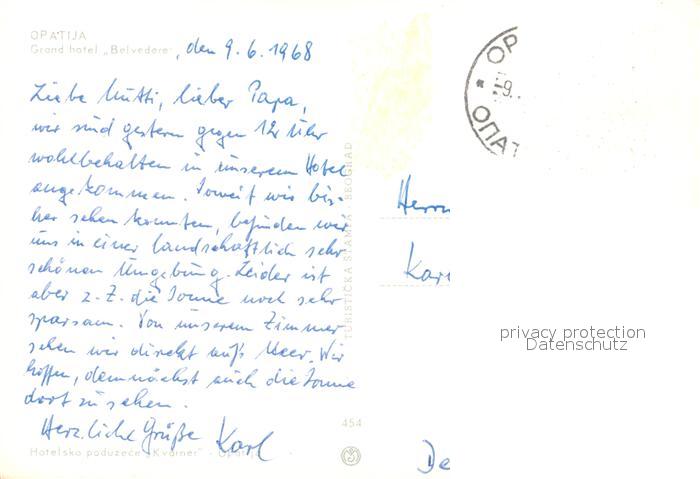 OPATIJA
Grand hotel „Belvedere", den 9.6.1968
Liebe Mutti, lieber Papa,
wir sind gestern gegen 12 Uhr
wohlbehalten in unserem Hotel
angekommen. Soweit wir bis-
her sehen konnten, befinden wir
uns in einer landschaftlich sehr
schönen Umgebung. Leider ist
aber z. Z. die Sonne noch sehr
sparsam. Von unserem Zimmer
sehen wir direkt aufs Meer. Wir
hoffen, demnächst auch die Sonne
dort zu sehen.
Herzliche Grüße Karl
Hotelsko poduzeće „Kvarner" - Opatija
TURISTIČKA ŠTAMPA - BEOGRAD
454
OP
-9.
ОПАТ
Herrn
Karl
De
privacy protection
Datenschutz